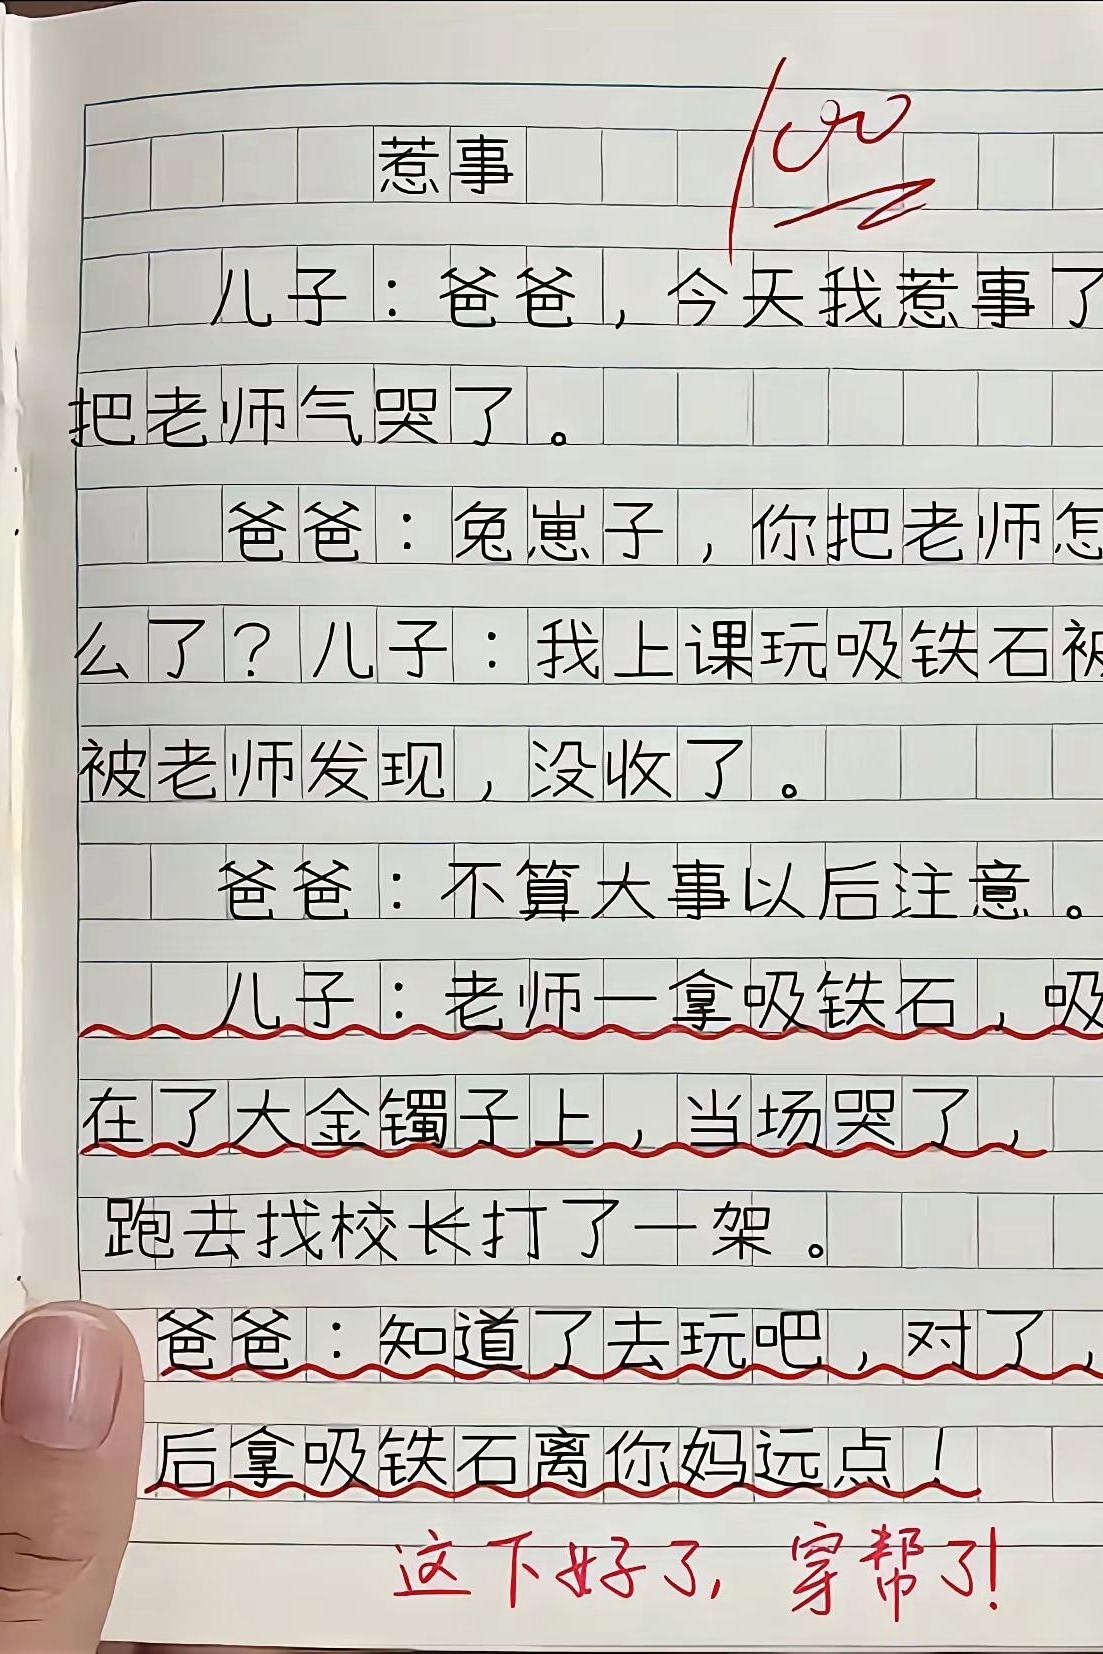 100
惹事
儿子：爸爸，今天我惹事了
把老师气哭了。
爸爸：兔崽子，你把老师怎
么了？儿子：我上课玩吸铁石被
被老师发现，没收了。
爸爸：不算大事以后注意。
儿子：老师一拿吸铁石，吸
在了大金镯子上，当场哭了，
跑去找校长打了一架。
爸爸：知道了去玩吧，对了，
后拿吸铁石离你妈远点！
这下好了，穿帮了！